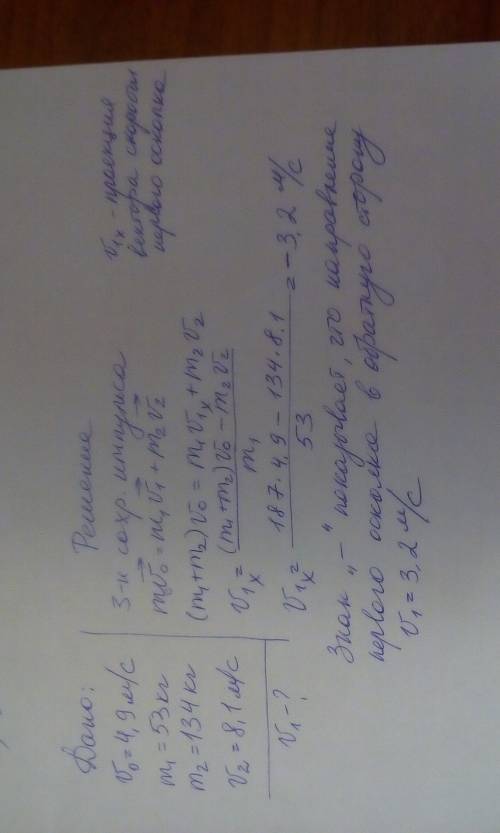 Дано:
v₀ = 4,9 м/с
m₁ = 53 кг
m₂ = 134 кг
v₂ = 8,1 м/с
v₁ - ?
Решение
З-н сохр. импульса
mv₀ = m₁v₁ + m₂v₂
(m₁+m₂)v₀ = m₁v₁ₓ + m₂v₂
v₁ₓ = (m₁+m₂)v₀ - m₂v₂ / m₁
v₁ₓ = 187·4,9 - 134·8,1 / 53 = -3,2 м/с
v₁ₓ - проекция
вектора скорости
первого осколка
Знак „-“ показывает, что направление
первого осколка в обратную сторону
v₁ = 3,2 м/с